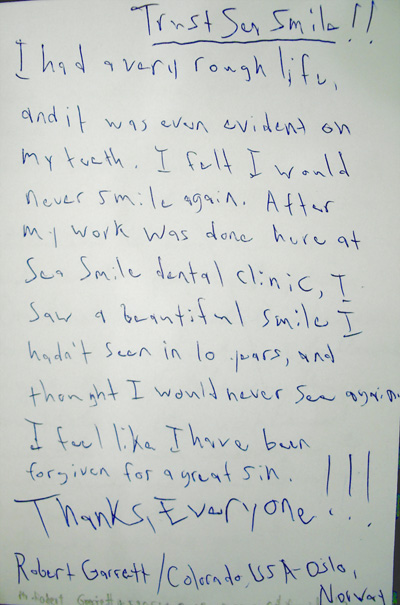 Trust Sea Smile!!
I had a very rough life,
and it was even evident on
my teeth. I felt I would
never smile again. After
my work was done here at
Sea Smile dental clinic, I
saw a beautiful smile I
hadn't seen in 10 years, and
thought I would never see again.
I feel like I have been
forgiven for a great sin.
Thanks, Everyone...!!!
Robert Garrett/Colorado, USA-Oslo,
Norway